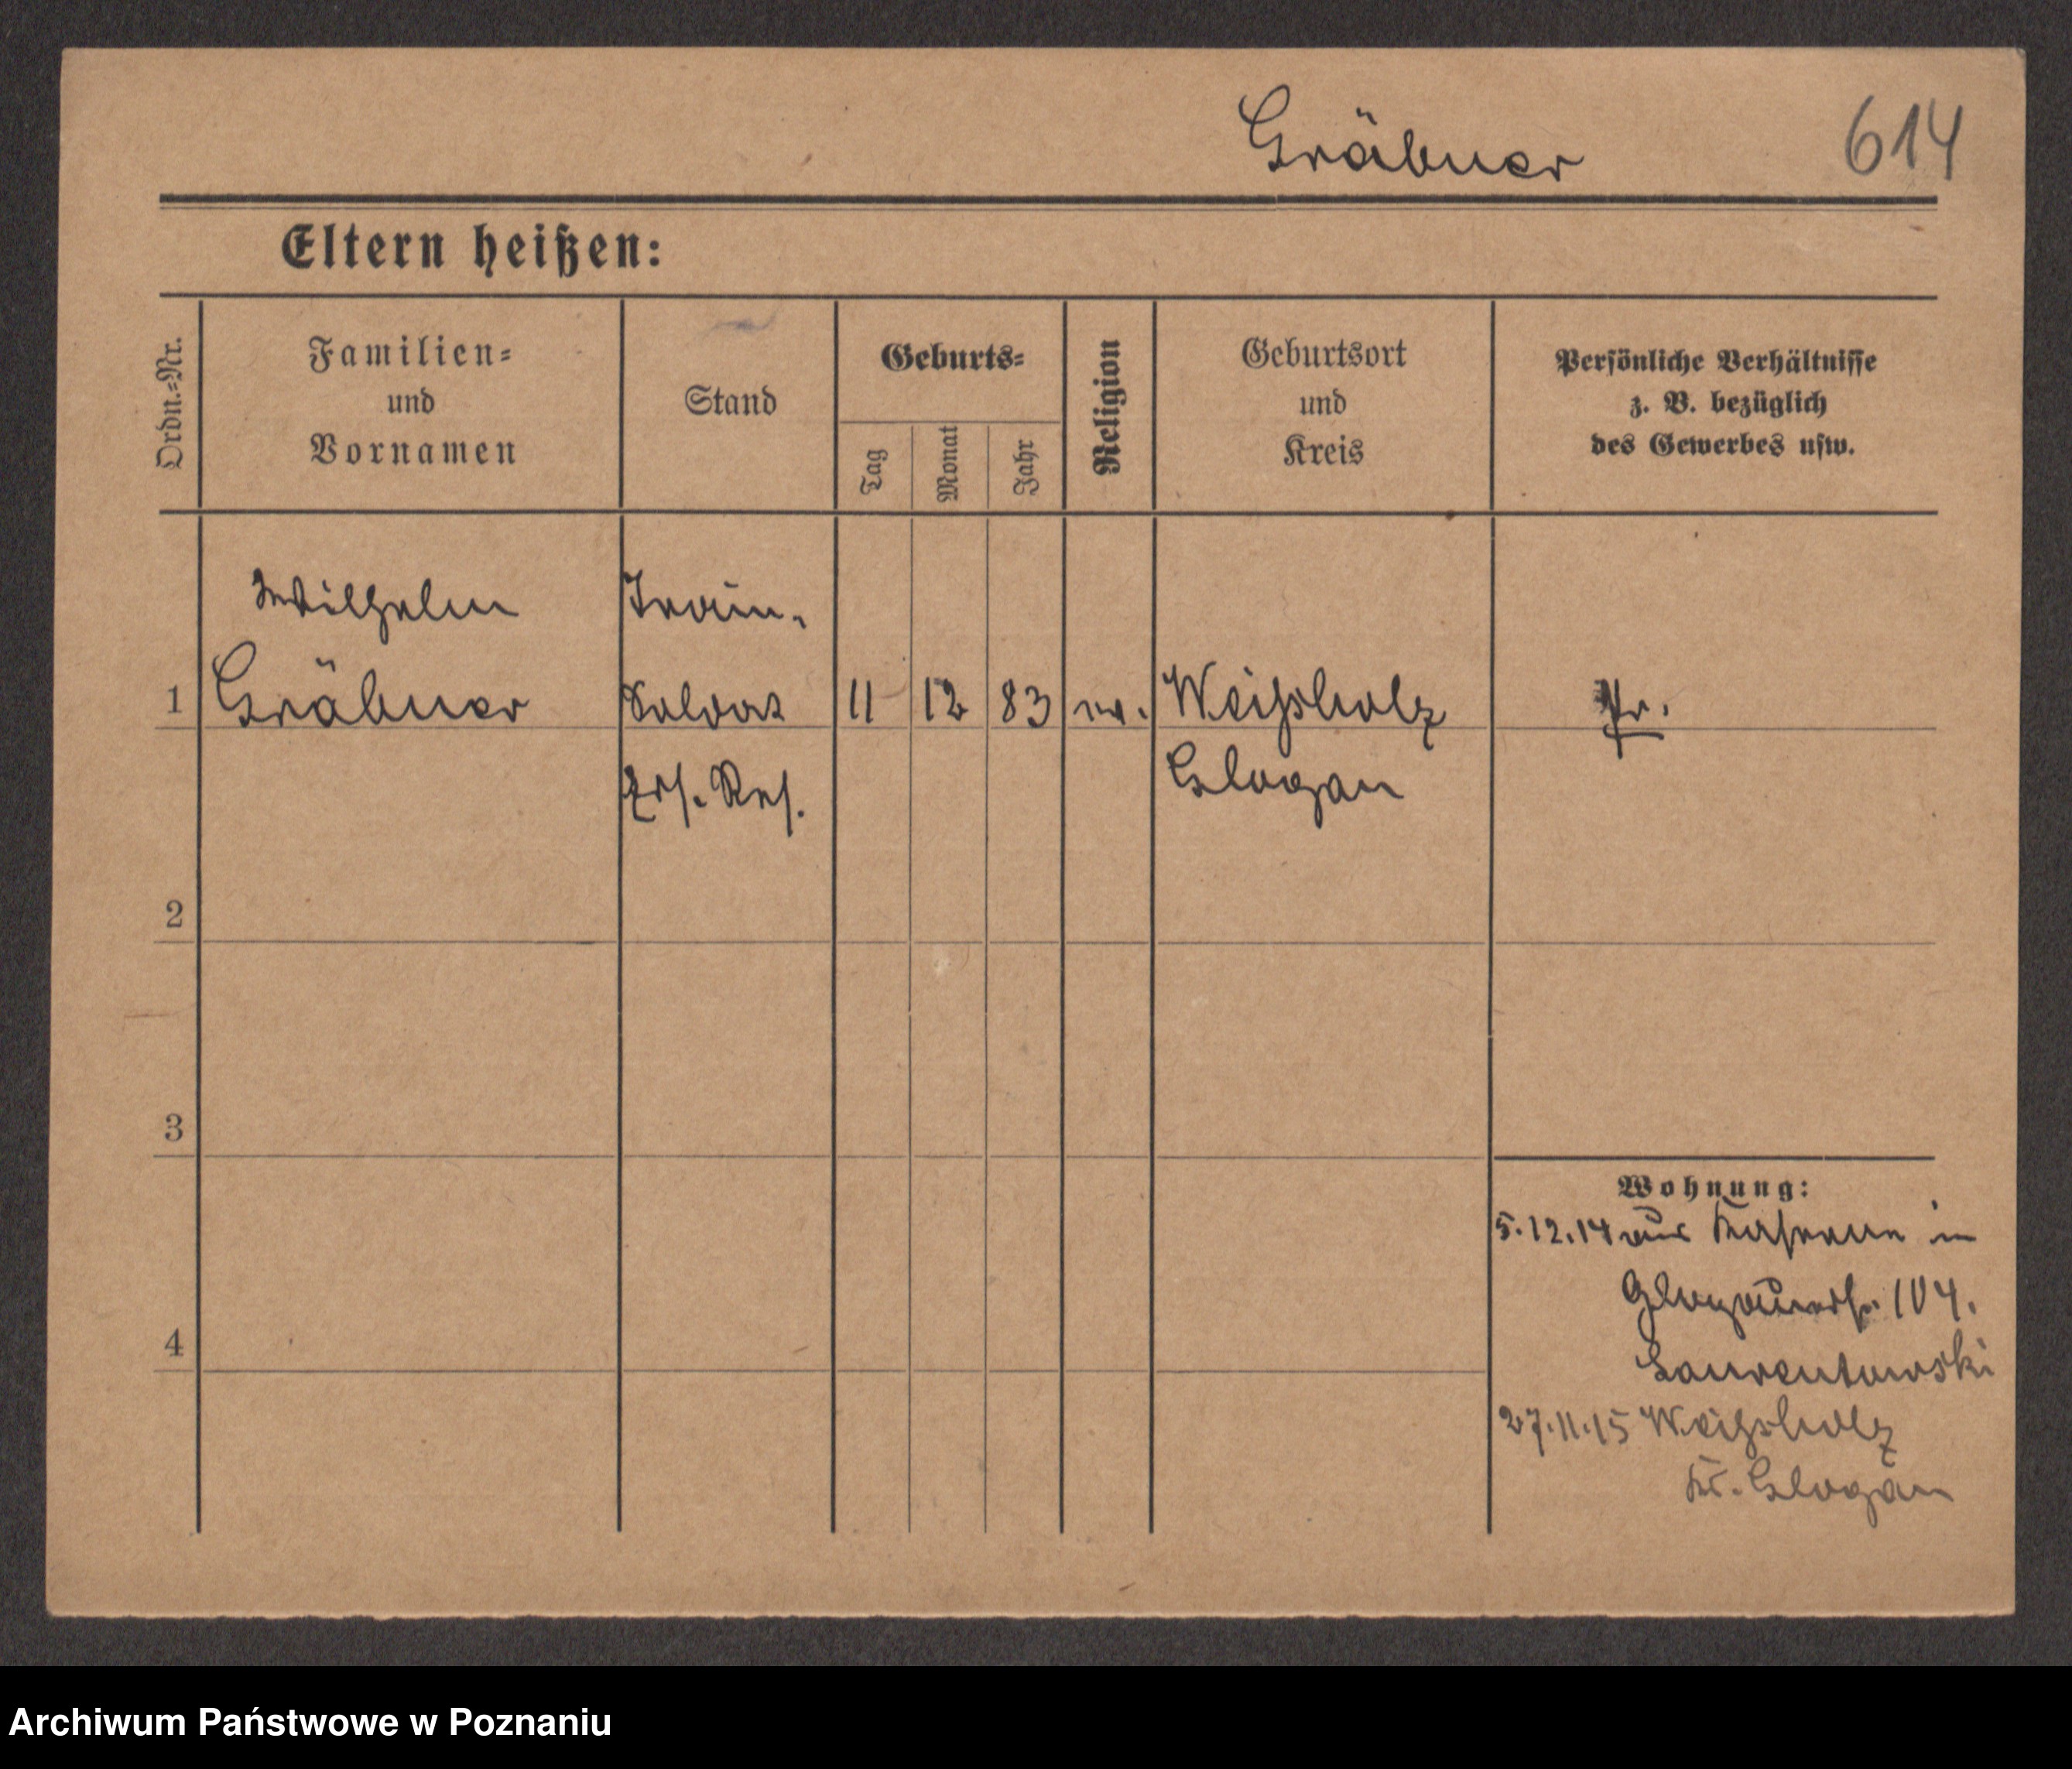 Gräbner 614
Eltern heißen:
Ordn.=Nr.
Familien=
und
Vornamen
Stand
Geburts=
Tag
Monat
Jahr
Religion
Geburtsort
und
Kreis
Persönliche Verhältnisse
z. B. bezüglich
des Gewerbes usw.
Wilhelm Train-
1 Gräbner Soldat 11 12 83 ev. Weißholz Pr.
Ers. Res. Glogau
2
3
4
Wohnung:
5.12.14 aus Kaserne in
Glogauerstr. 104.
Laurentowski
27.11.15 Weißholz
Kr. Glogau
Archiwum Państwowe w Poznaniu